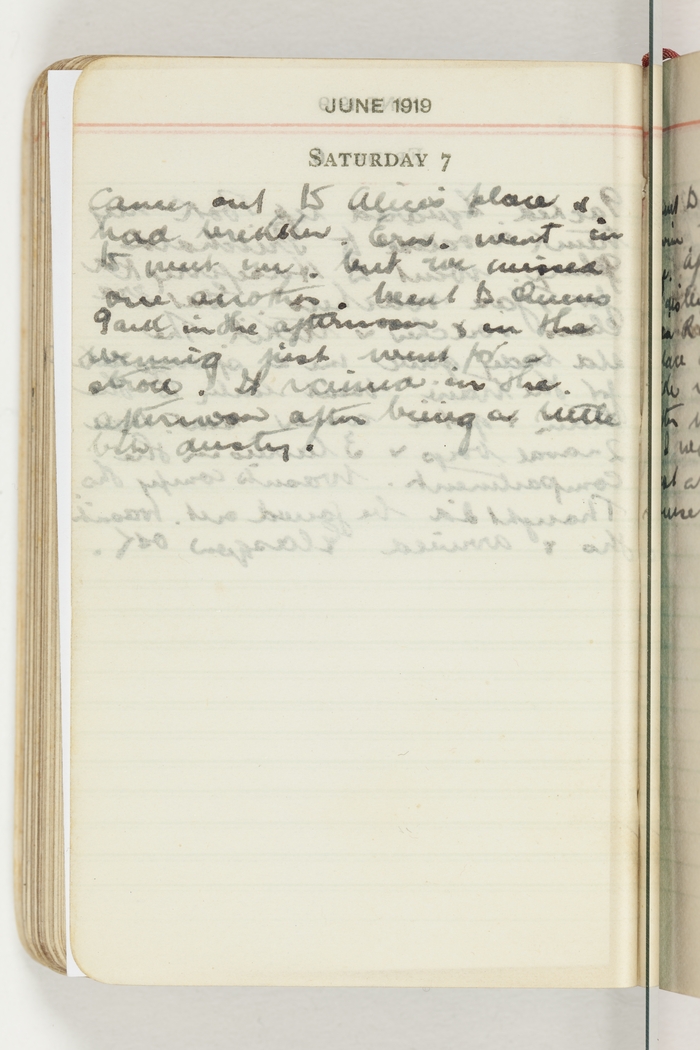 JUNE 1919
SATURDAY 7
Came out to Alice's place &
had breaker. Ern. went in
to meet me. but we missed
one another. Went to Queens
Gard in the afternoon & in the
evening just went for a
stroll. It rained in the
afternoon after being a little
bit dusty.